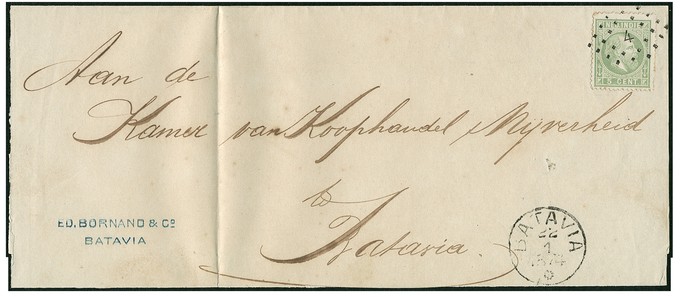 NED. INDIE
4
5 CENT
Aan de
Kamer van Koophandel Nijverheid
te
Batavia.
ED. BORNAND & Co
BATAVIA
BATAVIA
22
1
1874